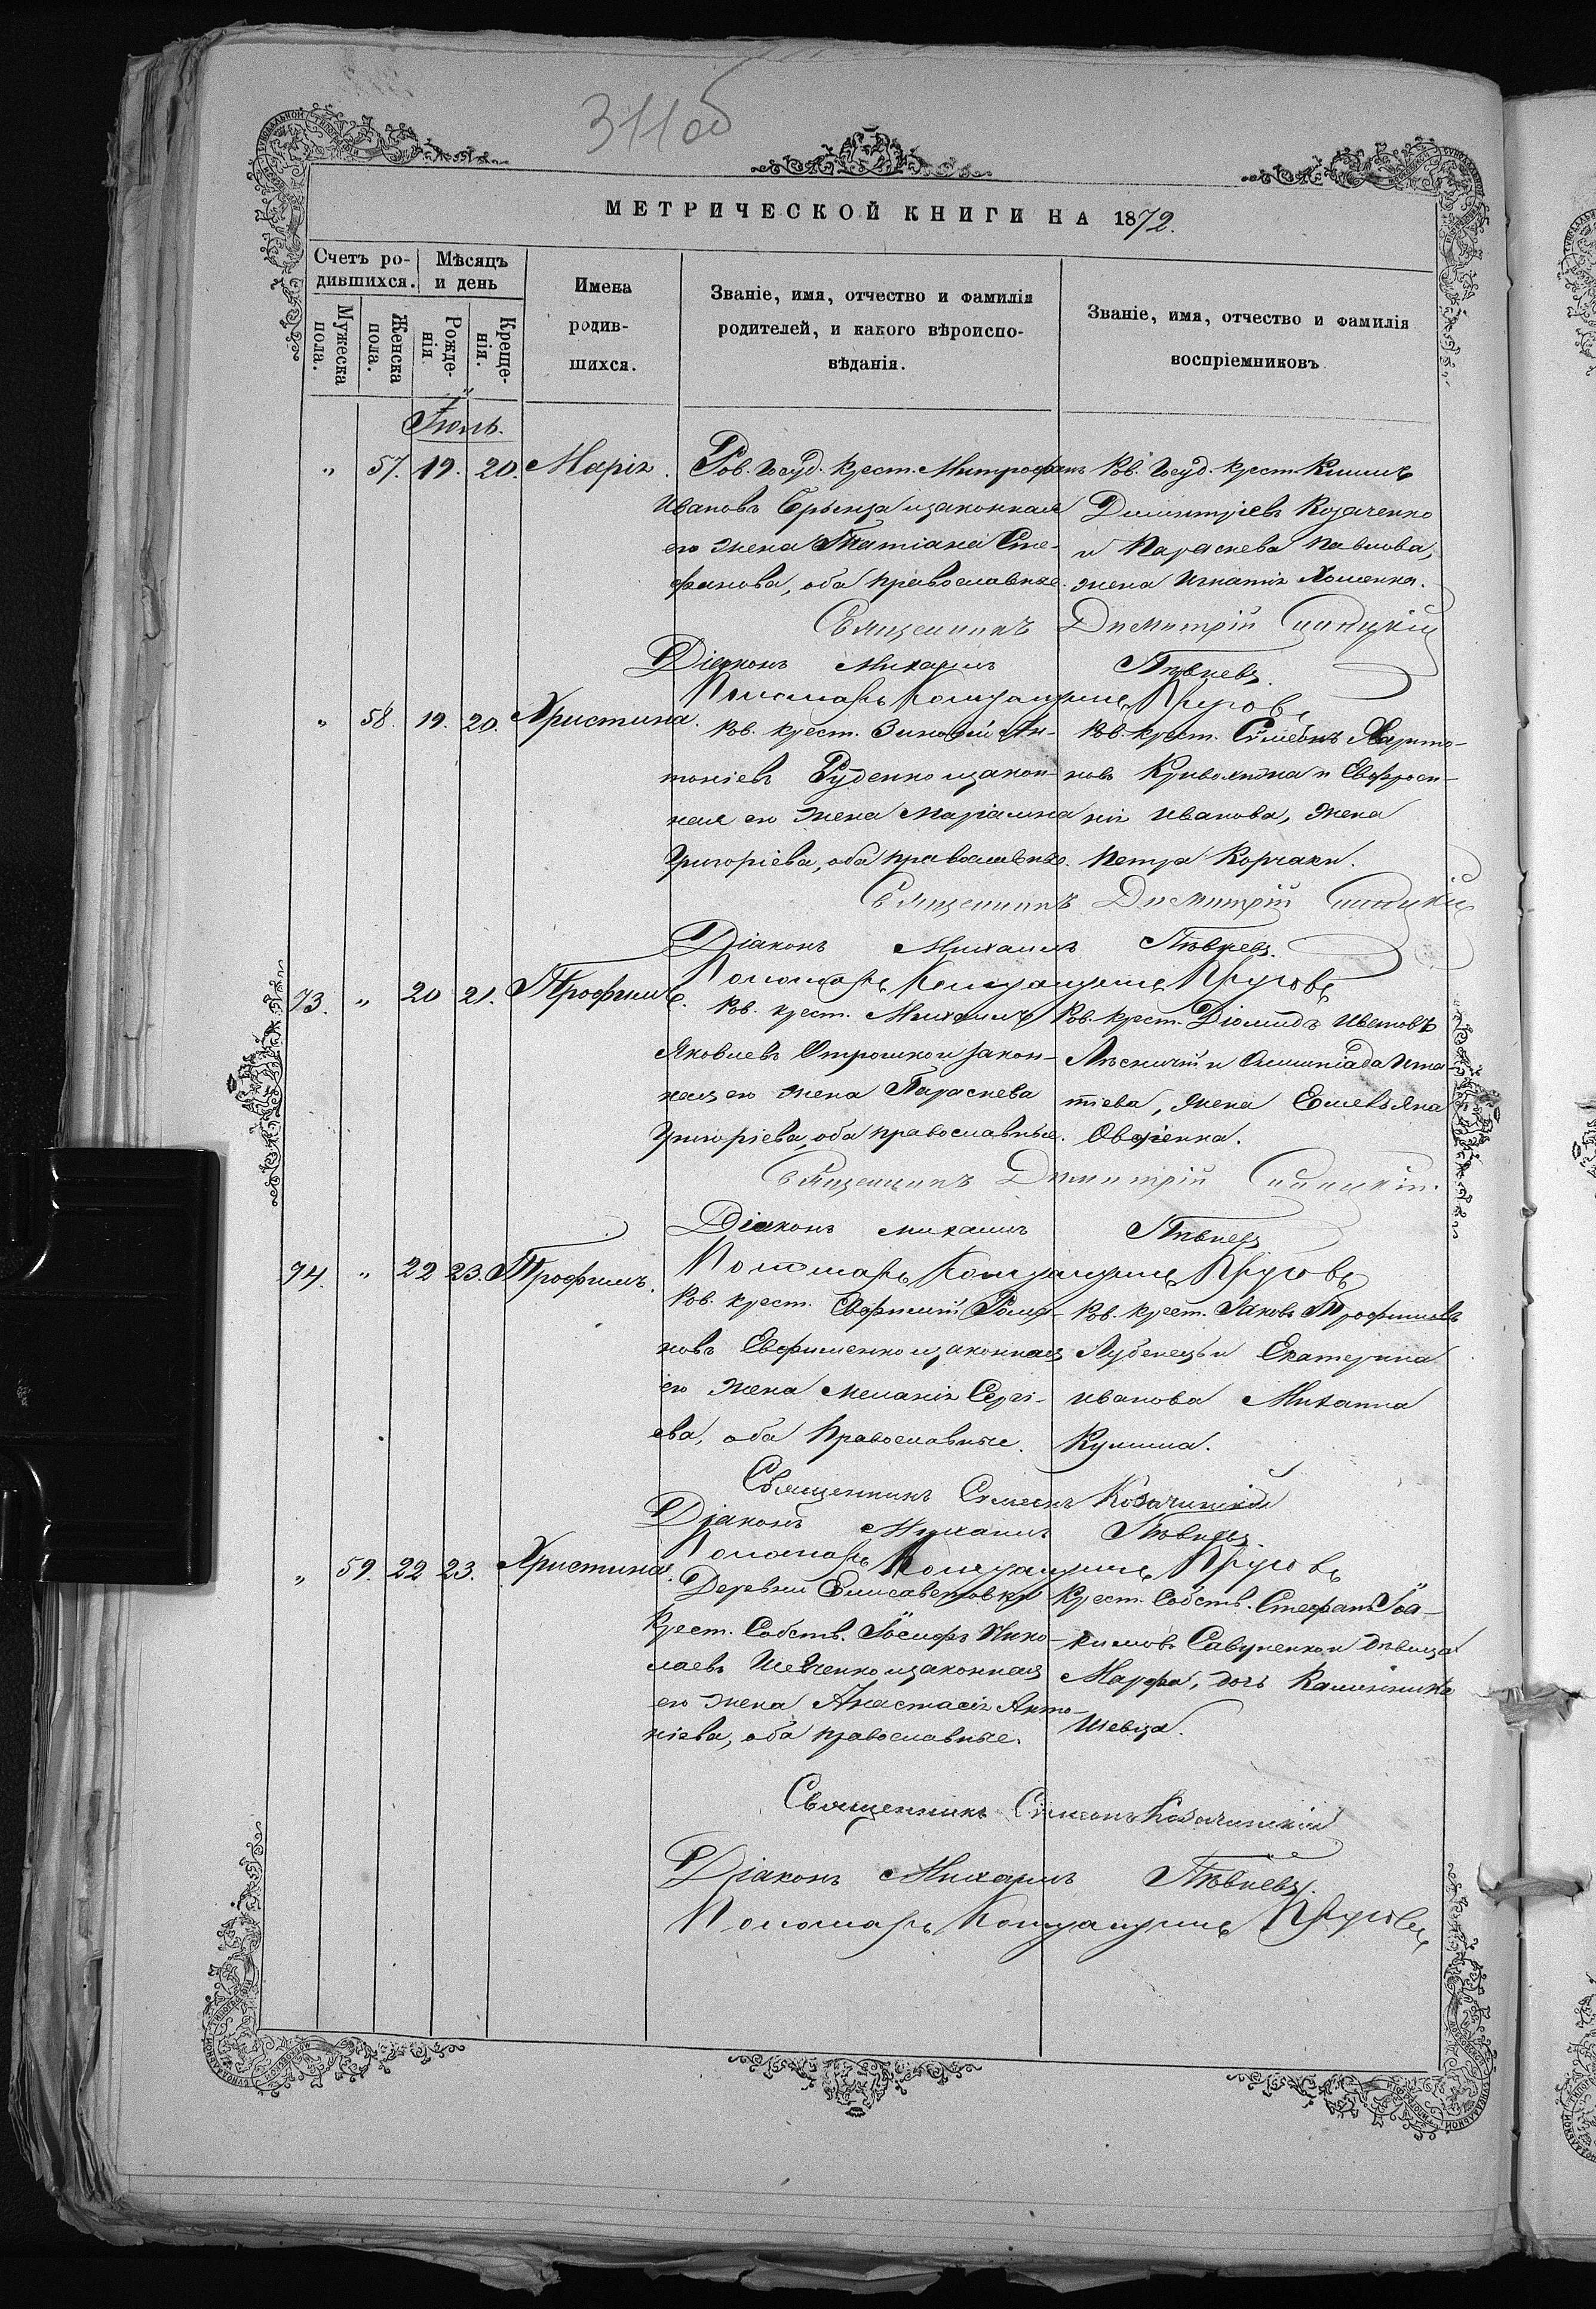 311об
МЕТРИЧЕСКОЙ КНИГИ НА 1872.
Счетъ ро-
дившихся.
Мѣсяцъ
и день
Мужеска
пола.
Женска
пола.
Рожде-
нія
Креще-
нія.
Имена
родив-
шихся.
Званіе, имя, отчество и фамилія
родителей, и какого вѣроиспо-
вѣданія.
Званіе, имя, отчество и фамилія
воспріемниковъ
Іюль.
" 57. 19. 20. Марія.
Ров. Госуд. крест. Митрофанъ
Ивановъ Брынза и законная
его жена Татіана Сте-
фанова, оба православные.
Ров. Госуд. крест. Климъ
Димитріевъ Козаченко
и Параскева Павлова,
жена Игнатія Хоменка.
Священникъ Димитрій
Діаконъ Михаилъ Пѣвневъ.
Пономарь
" 58. 19. 20. Христина.
Ров. крест. Зиновій Ан-
тоніевъ Руденко и закон-
ная его жена Маріамна
Григоріева, оба православные.
Ров. крест. Симеонъ Харито-
новъ и Евфроси-
нія Иванова, жена
Петра Корчаки.
Священникъ Димитрій
Діаконъ Михаилъ Пѣвневъ.
Пономарь
73. " 20 21. Трофимъ.
Ров. крест. Михаилъ
Яковлевъ Отрошко и закон-
ная его жена Параскева
Григоріева, оба православные.
Ров. крест. Діомидъ Ивановъ
Лѣсничій и Олимпіада Игна-
тіева, жена Емельяна
Овдіенка.
Священникъ Димитрій
Діаконъ Михаилъ Пѣвневъ
Пономарь
74. " 22 23. Трофимъ.
Ров. крест. Евфимій Рома-
новъ Евфименко и законная
его жена Меланія Сергі-
ева, оба Православные.
Ров. крест. Іаковъ Трофимовъ
Лубенецъ и Екатерина
Иванова Михаила
Кулиша.
Священникъ Симеонъ Козачинскій
Діаконъ Михаилъ Пѣвневъ
Пономарь
" 59. 22 23. Христина.
Деревни Елисаветовки
Крест. Собств. Іосифъ Нико-
лаевъ Шевченко и законная
его жена Анастасія Анто-
ніева, оба православные.
Крест. Собств. Стефанъ Іоа-
кимовъ Савученко и дѣвица
Марфа, дочь Каллиника
Шевца.
Священникъ Симеонъ Козачинскій
Діаконъ Михаилъ Пѣвневъ.
Пономарь